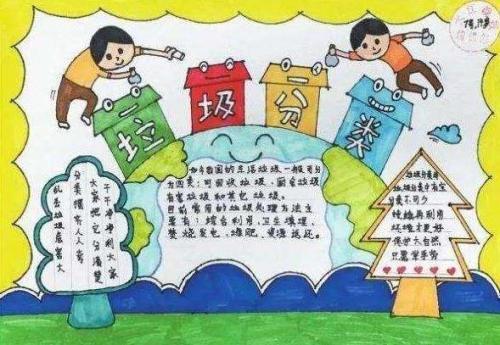 垃圾分类
如今我国的生活垃圾一般可分
为四类:可回收垃圾,厨余垃圾
有害垃圾和其他垃圾。
目前常用的垃圾处理方法主
要有:综合利用、卫生填埋、
焚烧发电、堆肥、资源返还。
乱丢垃圾危害大
分类 人人夸
大家把它分清楚
干干净净利大家
垃圾分类
垃圾分类中有宝
分类不可少
再利用
环境才更好
保护大自然
只需举手劳